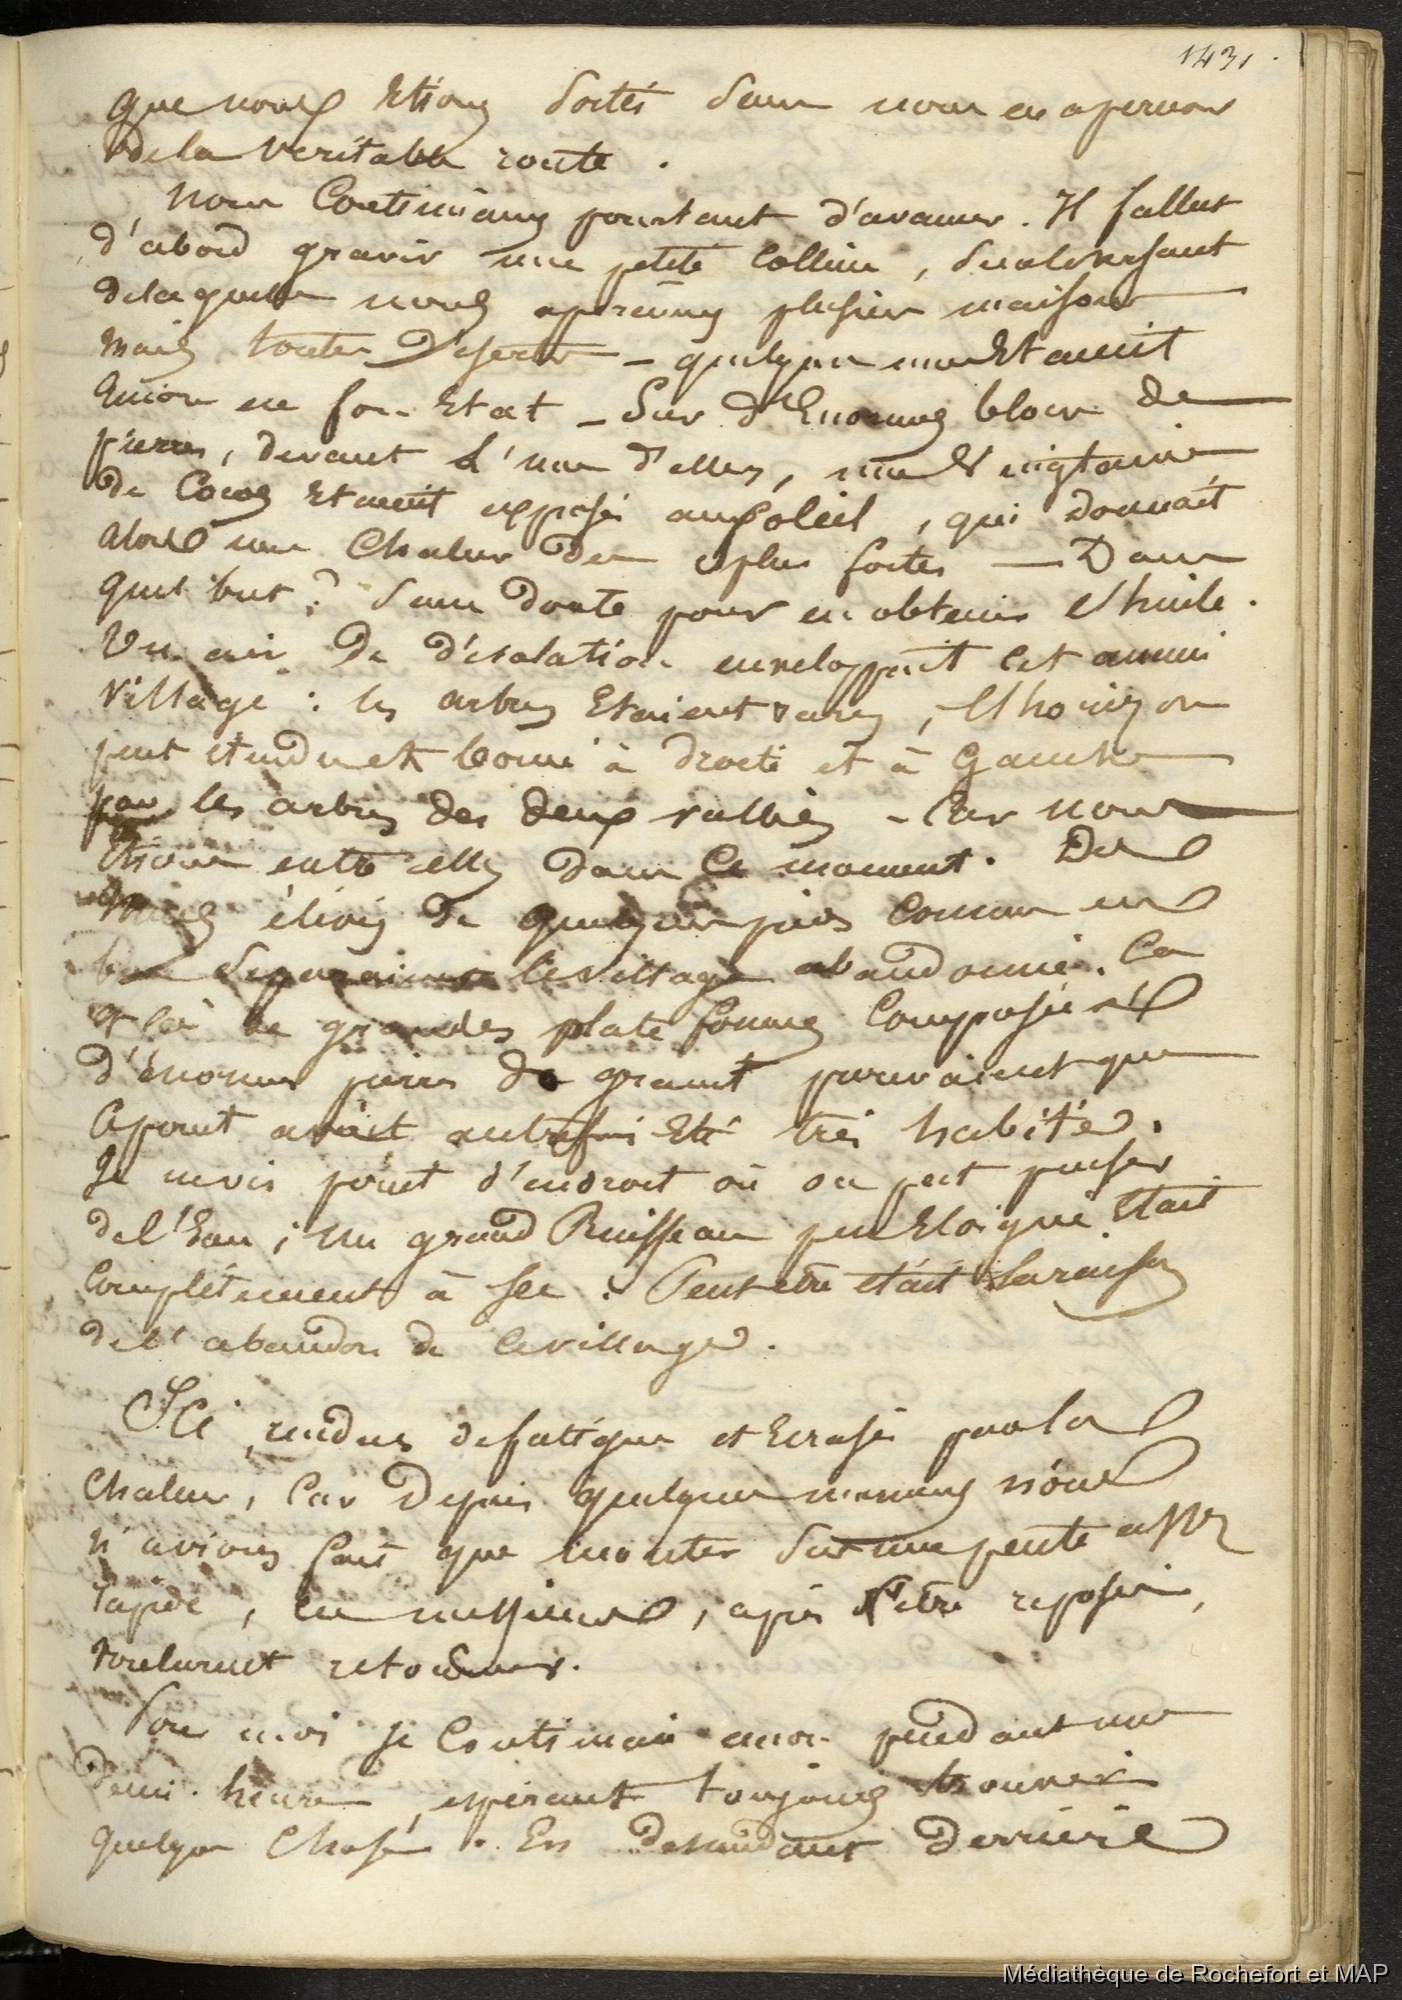 1431.
que nous Etions sortis sans nous en apercevoir
de la veritable route.
Nous Continuâmes pourtant d'avancer. Il fallut
d'abord gravir une petite Colline, sur le versant
de laquelle nous aperçûmes plusieurs maisons
mais toutes Désertes - quelques unes Etaient
encore en bon Etat - Sur d'Enormes blocs de
pierres, devant l'une d'elles, une vingtaine
de Cocos Etaient exposés au soleil, qui donnait
alors une Chaleur des plus fortes — Dans
quel but? Sans doute pour en obtenir l'huile.
Un air de désolation enveloppait cet ancien
Village : les arbres Etaient rares, l'horizon
peu étendu et borné à droite et à Gauche
par les arbres des deux vallées - Car nous
étions entre elles dans ce moment. Des
murs élevés de quelques pieds Comme en
bas séparaient le village abandonné. Ca
& là de grandes plate formes Composées
d'énormes pierres de granit prouvaient que
ce point avait autrefois Eté très habité.
Je ne vis point d'endroit où on put puiser
de l'Eau ; un grand Ruisseau peu Eloigné Etait
Complétement à sec : Peut etre etait la raison
de l'abandon de ce village.
Ici, rendus de fatigue et Ecrasés par la
Chaleur, Car Depuis quelques moments nous
n'avions fait que monter sur une pente assez
rapide, ces messieurs, après s'etre reposés,
voulurent retourner.
Pour moi je Continuai encore pendant une
demi-heure, espérant toujours trouver
quelque Chose. En descendant Derrière
Médiathèque de Rochefort et MAP